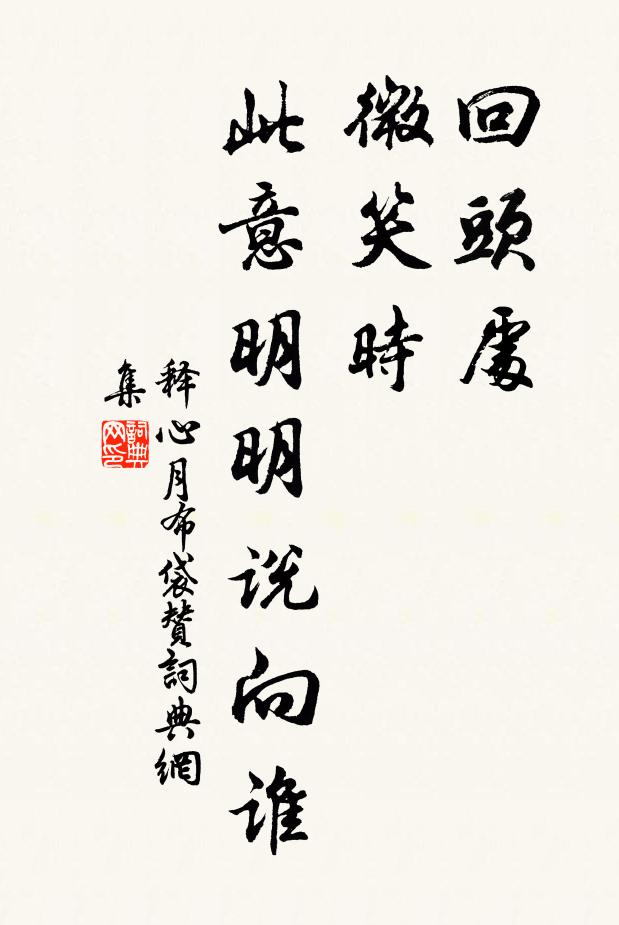 回頭處
微笑時
此意明明说向谁
释心月布袋贊詞典網
集
詞典网印